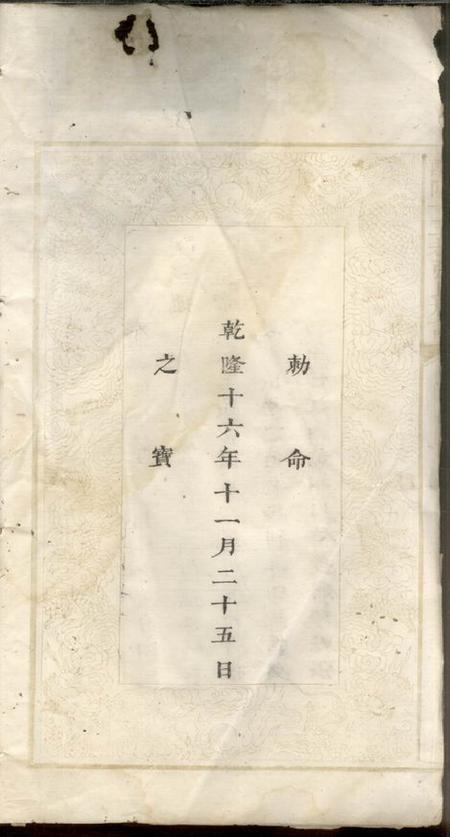 勅命
乾隆十六年十一月二十五日
之寳